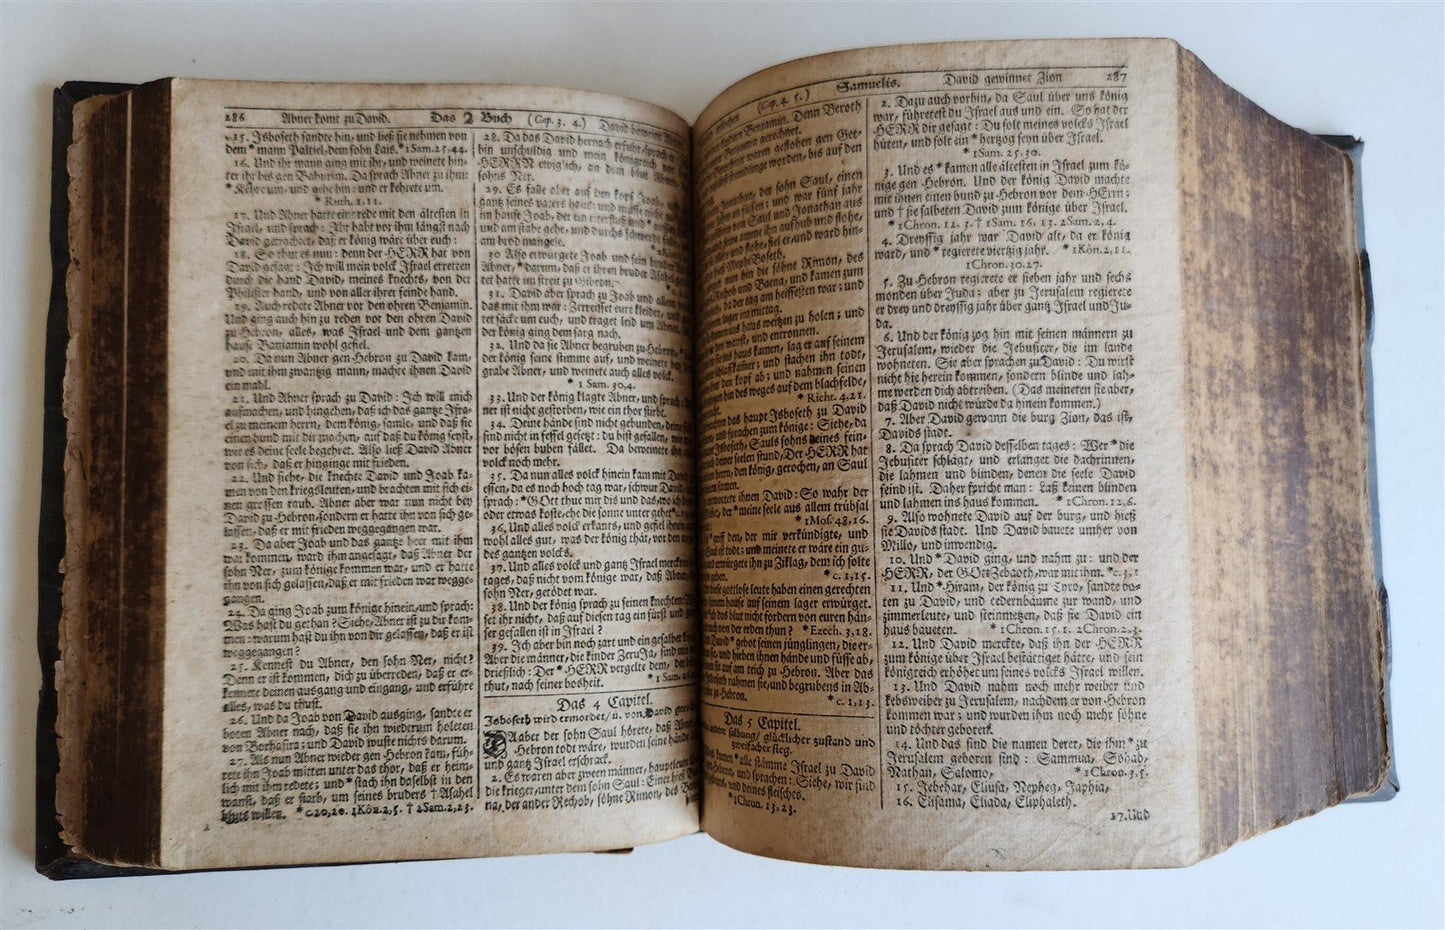 286 Abner komt zu David. Das 2 Buch (Cap. 3. 4.) David beweinet Abner
15. Isboseth sandte hin, und ließ sie nehmen von
dem * mann Paltiel, dem sohn Lais. * 1 Sam. 25, 44.
16. Und ihr mann ging mit ihr, und weinete hin-
ter ihr bis gen Bahurim. Da sprach Abner zu ihm:
* Kehre um, und gehe hin: und er kehrete um.
* Ruth. 1, 11.
17. Und Abner hatte eine rede mit den ältesten in
Israel, und sprach: Ihr habt vor ihm längst nach
David getrachtet, daß er könig wäre über euch:
18. So thut es nun: denn der HERR hat von
David gesagt: Ich will mein volck Israel erretten
durch die hand David, meines knechts, von der
Philister hand, und von aller ihrer feinde hand.
19. Auch redete Abner vor den ohren Benjamin.
Und ging auch hin zu reden vor den ohren David
zu Hebron, alles, was Israel und dem gantzen
hause Benjamin wohl gefiel.
20. Da nun Abner gen Hebron zu David kam,
und mit ihm zwantzig mann, machte ihnen David
ein mahl.
21. Und Abner sprach zu David: Ich will mich
aufmachen, und hingehen, daß ich das gantze Isra-
el zu meinem herrn, dem könig, samle, und daß sie
einen bund mit dir machen, auf daß du könig seyst,
wie es deine seele begehret. Also ließ David Abner
von sich, daß er hinginge mit frieden.
22. Und siehe, die knechte David und Joab ka-
men von den kriegsleuten, und brachten mit sich ei-
nen grossen raub. Abner aber war nun nicht bey
David zu Hebron, sondern er hatte ihn von sich ge-
lassen, daß er mit frieden weggegangen war.
23. Da aber Joab und das gantze heer mit ihm
war kommen, ward ihm angesagt, daß Abner der
sohn Ner, zum könige kommen war, und er hatte
ihn von sich gelassen, daß er mit frieden war wegge-
gangen.
24. Da ging Joab zum könige hinein, und sprach:
Was hast du gethan? Siehe, Abner ist zu dir kom-
men: warum hast du ihn von dir gelassen, daß er ist
weggegangen?
25. Kennest du Abner, den sohn Ner, nicht?
Denn er ist kommen, dich zu überreden, daß er er-
kennete deinen ausgang und eingang, und erführe
alles, was du thust.
26. Und da Joab von David ausging, sandte er
boten Abner nach, daß sie ihn wiederum holeten
von Borhasira; und David wuste nichts darum.
27. Als nun Abner wieder gen Hebron kam, füh-
rete ihn Joab mitten unter das thor, daß er heim-
lich mit ihm redete; und * stach ihn daselbst in den
wanst, daß er starb, um seines bruders † Asahel
bluts willen. * c. 20, 10. 1 Kön. 2, 5. † 2 Sam. 2, 23.
28. Da das David hernach erfuhr, sprach er:
bin unschuldig und mein königreich vor
HERRN ewiglich, an dem blut Abner,
sohns Ner.
29. Es falle aber auf den kopf Joab,
gantz seines vaters haus: und müsse nicht
im hause Joab, der ein eiterfluß und
und am stabe gehe, und durchs schwerdt falle
am brod mangele.
30 Also erwürgete Joab und sein bruder
Abner, * darum, daß er ihren bruder Asahel
tet hatte im streit zu Gibeon.
31. David aber sprach zu Joab und allem
das mit ihm war: Zerreisset eure kleider, und
tet säcke um euch, und traget leid um Abner.
der könig ging dem sarg nach.
32. Und da sie Abner begruben zu Hebron,
der könig seine stimme auf, und weinete bey
grabe Abner, und weinete auch alles volck.
* 1 Sam. 30, 4.
33. Und der könig klagte Abner, und sprach:
ner ist nicht gestorben, wie ein thor stirbt.
34. Deine hände sind nicht gebunden, deine
sind nicht in fessel gesetzt: du bist gefallen, wie
vor bösen buben fället. Da beweinete ihn
volck noch mehr.
35. Da nun alles volck hinein kam mit David
essen, da es noch hoch tag war, schwur David
sprach: * GOtt thue mir dis und das, wo ich
oder etwas koste, ehe die sonne unter gehet
36. Und alles volck erkants, und gefiel ihnen
wohl alles gut, was der könig thät, vor den augen
des gantzen volcks.
37. Und alles volck und gantz Israel merckten
tages, daß nicht vom könige war, daß Abner,
sohn Ner, getödet war.
38. Und der könig sprach zu seinen knechten:
set ihr nicht, daß auf diesen tag ein fürst und
ser gefallen ist in Israel?
39. Ich aber bin noch zart und ein gesalbter
Aber die männer, die kinder ZeruJa, sind mir
drießlich: Der * HERR vergelte dem, der
thut, nach seiner bosheit. * 1 Sam.
Das 4 Capitel.
Isboseth wird ermordet/ u. von David
DA aber der sohn Saul hörete, daß Abner
Hebron todt wäre, wurden seine hände
und gantz Israel erschrack.
2. Es waren aber zween männer, hauptleute
die krieger, unter dem sohn Saul: Einer hieß
na, der ander Rechob, söhne Rimon, des
(Cap. 4. 5.) Samuelis. David gewinnet Zion 287
kindern Benjamin. Denn Beroth
Benjamin gerechnet.
waren geflohen gen Get-
fremdlinge worden, bis auf den
der sohn Saul, einen
an füssen; und war fünf jahr
von Saul und Jonathan aus
seine amme ihn aufhub und flohe,
und flohe, fiel er, und ward hin-
MephiBoseth.
nun hin die söhne Rimon, des
Rechob und Baena, und kamen zum
da der tag am heissesten war; und
lager am mittag.
haus weitzen zu holen; und
wanst, und entronnen.
haus kamen, lag er auf seinem
schlaffkamer; und stachen ihn todt,
den kopf ab; und nahmen seinen
hin des weges auf dem blachfelde,
* Richt. 4, 21.
das haupt Isboseth zu David
und sprachen zum könige: Siehe, da
Isboseth, Sauls sohns deines fein-
deiner seelen stund, Der HERR hat
herrn, den könig, gerochen, an Saul
samen.
ihnen David: So wahr der
der * meine seele aus allem trübsal
* 1 Mos. 48, 16.
den, der mir verkündigte, und
Saul ist todt; und meinete er wäre ein gu-
und erwürgete ihn zu Ziklag, dem ich solte
geben. * c. 1, 15.
diese gottlose leute haben einen gerechten
hause auf seinem lager erwürget.
das blut nicht fordern von euren hän-
von der erden thun? * Ezech. 3, 18.
David * gebot seinen jünglingen, die er-
und hieben ihnen hände und füsse ab,
sie auf am teich zu Hebron. Aber das
Isboseth nahmen sie, und begrubens in Ab-
zu Hebron. * c. 1, 13.
Das 5 Capitel.
andere salbung/ glücklicher zustand und
zweifacher sieg.
kamen * alle stämme Israel zu David
Hebron, und sprachen: Siehe, wir sind
und deines fleisches.
* 1 Chron. 13, 23.
2. Dazu auch vorhin, da Saul über uns könig
war, führetest du Israel aus und ein. So hat der
HERR dir gesagt: Du solt meines volcks Israel
hüten, und solt ein * hertzog seyn über Israel.
* 1 Sam. 25, 30.
3. Und es * kamen alle ältesten in Israel zum kö-
nige gen Hebron. Und der könig David machte
mit ihnen einen bund zu Hebron vor dem HErrn;
und † sie salbeten David zum könige über Israel.
* 1 Chron. 12, 3. † 1 Sam. 16, 13. 2 Sam. 2, 4.
4. Dreyssig jahr war David alt, da er könig
ward, und * regierete viertzig jahr. * 1 Kön. 2, 11.
1 Chron. 30, 27.
5. Zu Hebron regierete er sieben jahr und sechs
monden über Juda: aber zu Jerusalem regierete
er drey und dreyssig jahr über gantz Israel und Ju-
da.
6. Und der könig zog hin mit seinen männern zu
Jerusalem, wieder die Jebusiter, die im lande
wohneten. Sie aber sprachen zu David: Du wirst
nicht hie herein kommen, sondern blinde und lah-
me werden dich abtreiben. (Das meineten sie aber,
daß David nicht würde da hinein kommen.)
7. Aber David gewann die burg Zion, das ist,
Davids stadt.
8. Da sprach David desselben tages: Wer * die
Jebusiter schlägt, und erlanget die dachrinnen,
die lahmen und blinden, denen die seele David
feind ist. Daher spricht man: Laß keinen blinden
und lahmen ins haus kommen. * 1 Chron. 12, 6.
9. Also wohnete David auf der burg, und hieß
sie Davids stadt. Und David bauete umher von
Millo, und inwendig.
10. Und * David ging, und nahm zu: und der
HERR, der GOtt Zebaoth, war mit ihm. * c. 3, 1
11. Und * Hiram, der könig zu Tyro, sandte bo-
ten zu David, und cedernbäume zur wand, und
zimmerleute, und steinmetzen, daß sie David ein
haus baueten. * 1 Chron. 15, 1. 2 Chron. 2, 3.
12. Und David merckte, daß ihn der HERR
zum könige über Israel bestättiget hätte, und sein
königreich erhöhet um seines volcks Israel willen.
13. Und David nahm noch mehr weiber und
kebsweiber zu Jerusalem, nachdem er von Hebron
kommen war; und wurden ihm noch mehr söhne
und töchter geboren.
14. Und das sind die namen derer, die ihm * zu
Jerusalem geboren sind: Sammua, Sobab,
Nathan, Salomo, * 1 Chron. 3, 5.
15. Jebehar, Elisua, Nepheg, Japhia,
16. Elisama, Eliada, Eliphaleth.
17. Und